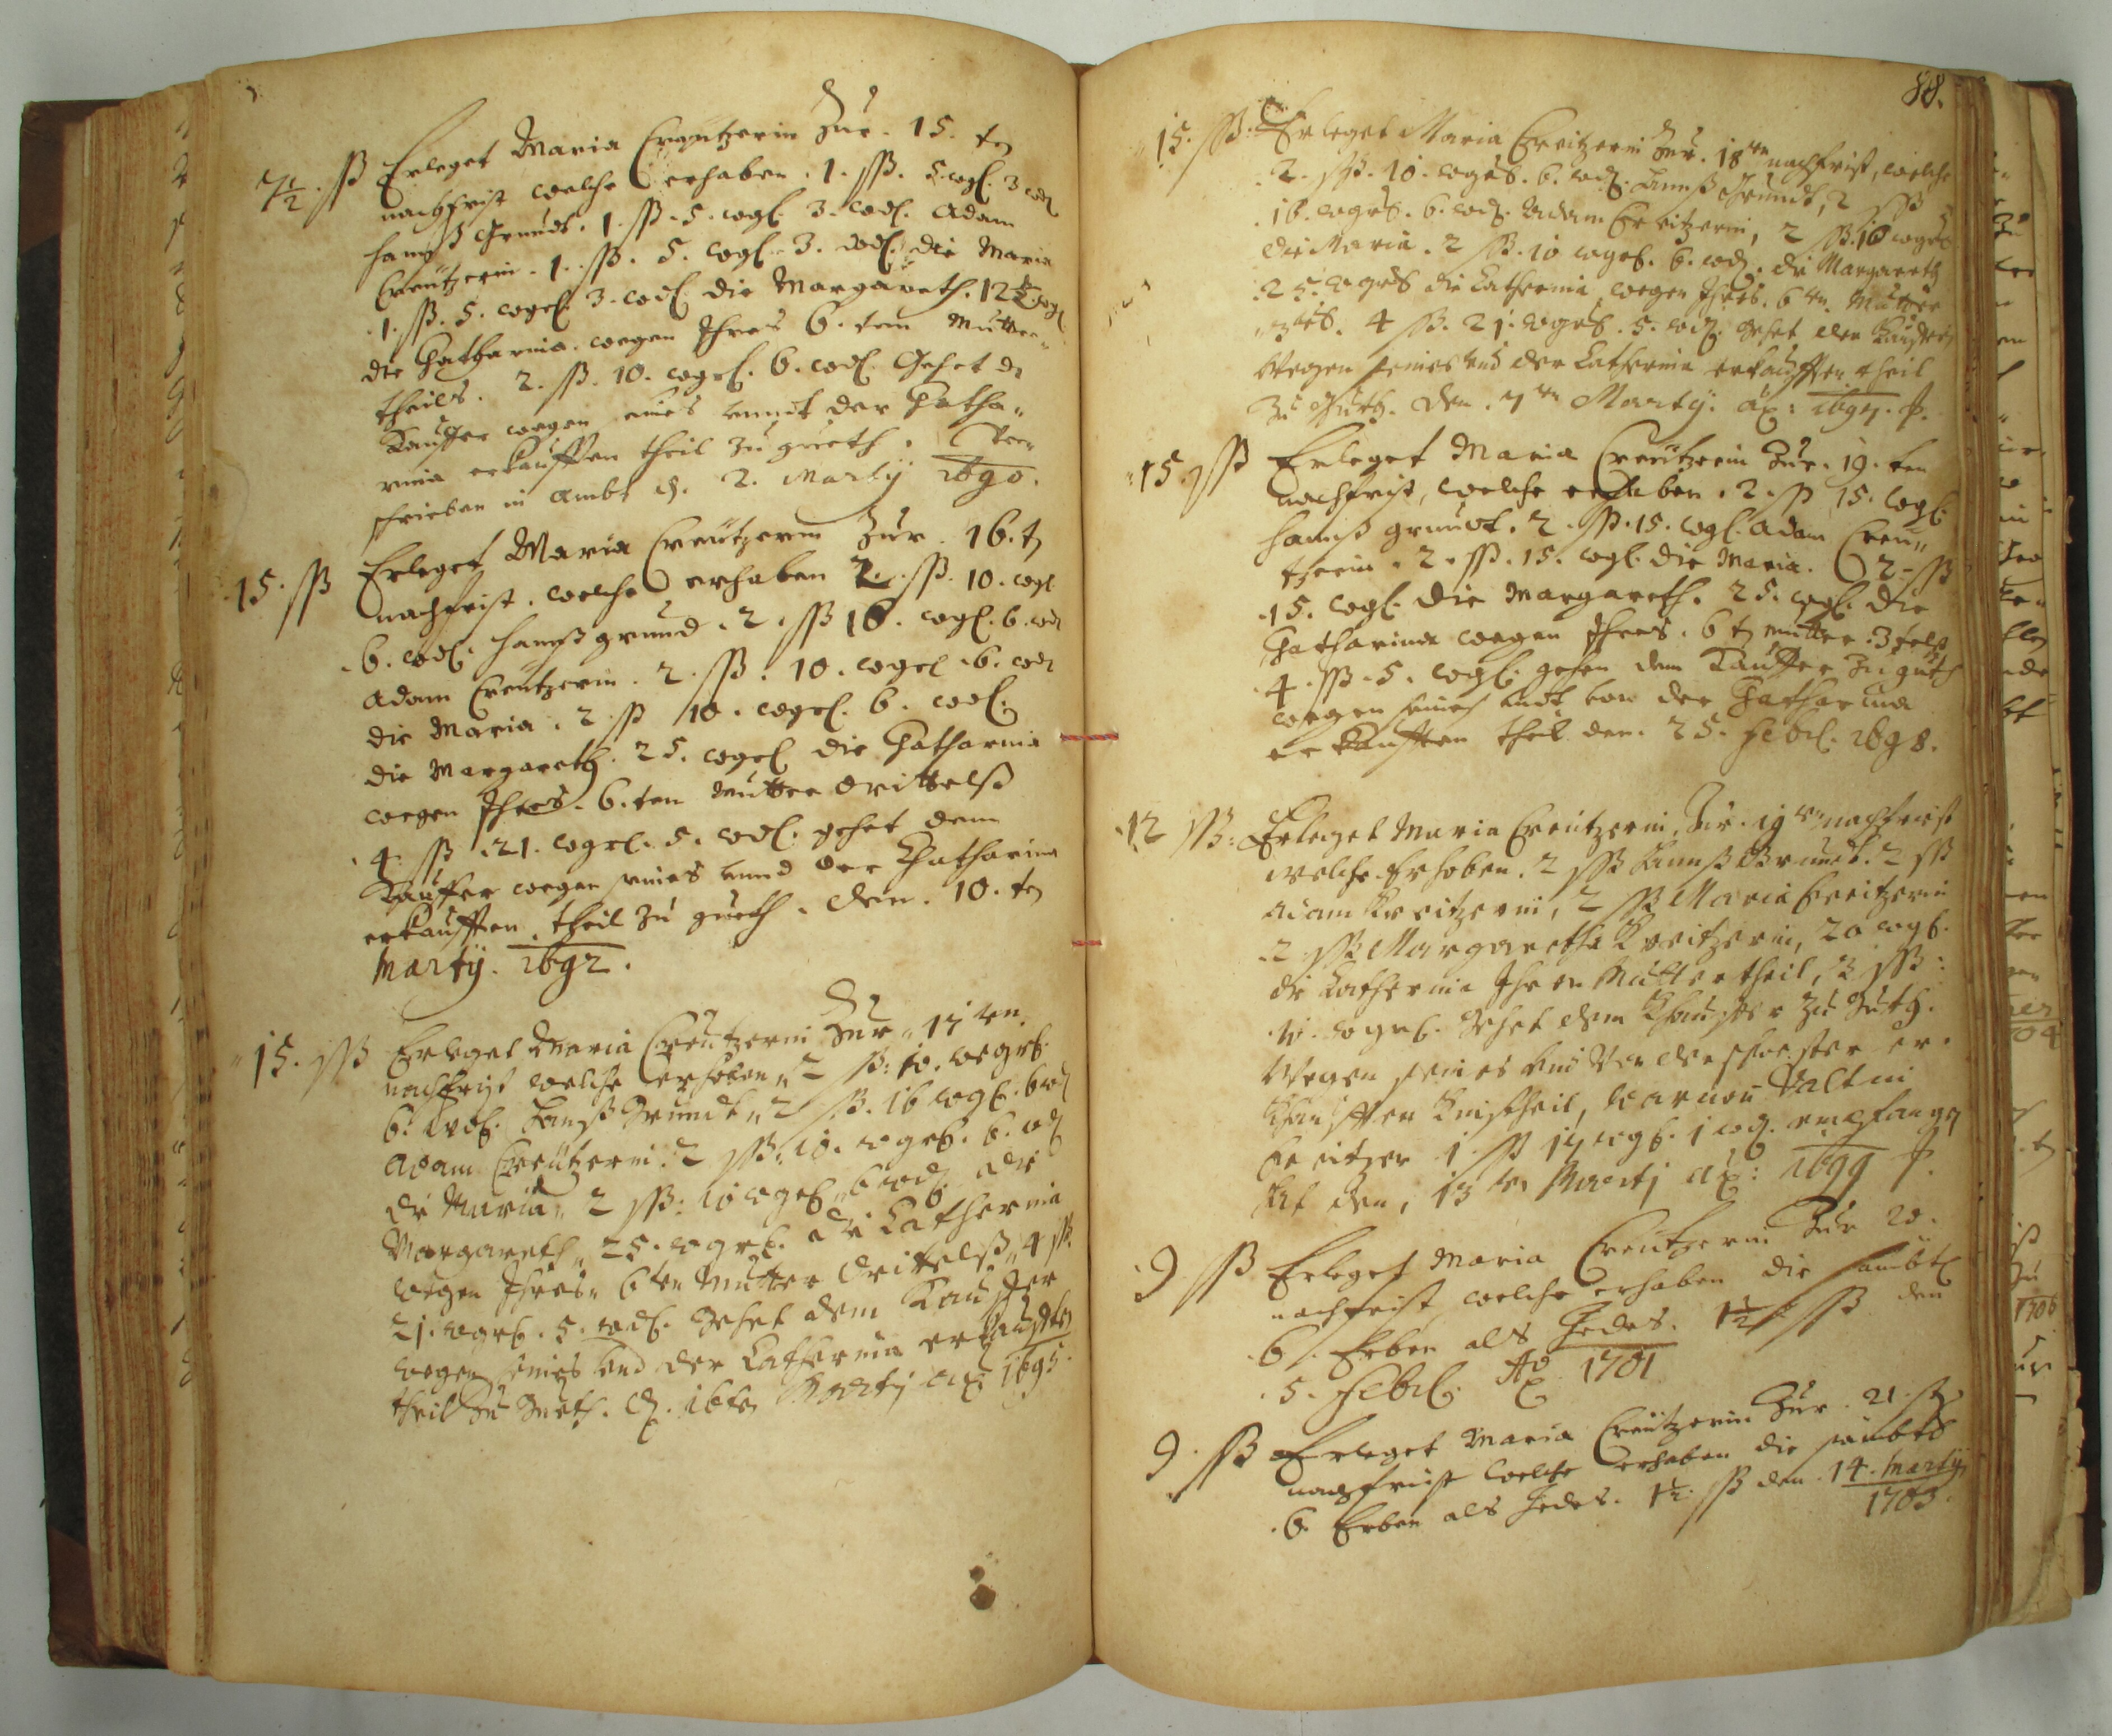 7½. ß Erleget Maria Creützerin Zur. 15. ten
nachfrist welche erhaben. 1. ßß. 5. wgl. 3 wdl
hanß Grundt. 1. ßß. 5. wgl. 3. wdl. Adam
Creützerin. 1. ßß. 5. wgl. 3. wdl. die Maria
1. ßß. 5. wgel. 3. wdl. die Margareth. 12½ wgl.
die Chatharina. wegen Ihres 6. ten Mutter
theils. 2. ßß. 10. wgrl. 6. wdl. Gehet de
Kauffer wegen eines unndt der Chatha„
rina erkaufften theil zu gueth.
schrieben in Ambt d. 2. Martÿ 1690.
15. ßß Erleget Maria Creützerin Zur. 16. t
nachfrist. welche erhaben 2. ßß. 10. wgl
6. wdl. hanß grund. 2. ßß 10. wgl. 6. wdl
Adam Creützerin. 2. ßß. 10. wgel. 6. wdl
die Maria. 2. ß 10. wgrl. 6. wdl.
die Margareth. 25. wgel die Chatharina
wegen Ihres. 6. ten Mutter drittelß
4 ßß. 21. wgrl. 5. wdl. gehet dem
Kauffer wegen seines unnd der Chatharina
erkaufften. theil zu gueth. den. 10. t
Martÿ. 1692.
15. ßß Erleget Maria Creützerin Zur. 17 ten.
nachfrist welche erhoben„ 2 ßß: 10. wegrl.
6. wdl. Hanß Grundt„ 2 ßß. 10 wgl. 6 wdl
Adam Creützerin. 2 ßß. 10. wgrl. 6. wdl
die Maria„ 2 ßß: 10 wgrl„ 6 wdl. die
Margareth„ 25. wgrl. die Catherina
wegen Ihres„ 6 ten Mutter drittelß„ 4 ßß.
21. wgrl. 5. wdl. gehet dem Kauffer
wegen seines und der Catherina erkaufften
theil zu Gueth. d. 16 ten Marty ao 1695.
88.
15. ßß: Erleget Maria Creitzerin Zur. 18 ten nachfrist, welche
2. ßß. 10. wgrl. 6. wdl. Hannß Grundt, 2 ßß
10. wgrl. 6. wdl. Adam Creitzerin, 2 ßß. 10 wgrl
die Maria. 2 ßß. 10 wgrl. 6. wdl. die Margareth
25. wgrl die Catherina wegen Ihres. 6 ten. Mutter
4 ßß. 21. wgrl. 5. wdl. gehet dem Kauffer
Wegen seines und der Catherina erkaufften theil
Zu Guth. Den. 7 ten Martÿ. ao: 1697.
15 ßß Erleget Maria Creützerin Zur. 19. ten
nachfrist, welche erhaben. 2. ß 15. wgl.
hanß grundt. 2. ßß. 15. wgl. Adam Creü„
tzerin. 2. ßß. 15. wgl. die Maria. 2. ßß
15. wgl. die Margareth. 25. wgl. die
Chatharina wegen Ihres. 6 t mutter. 3 telß
4. ßß. 5. wgl. gehen dem Kauffer zu guth
wegen seines undt von der Chatharina
erkaufften theil. den. 25. Febrl. 1698.
12 ßß: Erleget Maria Creützerin, Zur. 19 ten nachfrist
welche Erhoben. 2 ßß Hannß Grundt. 2 ßß
Adam Kreitzerin, 2 ßß Maria Creitzerin
2 ßß Margaretha Kreitzerin, 20 wgl.
die Catherina Ihren Muttertheil, 3 ßß:
wgrl. Gehet dem Khauffer zu Guth.
Wegen seines und Von der schwester er
Khaufften Erbstheil, Varnon Valtin
Creitzer 1 ßß 17 wgl. 1 wdl. empfangen
hat den, 13 ten Martj ao: 1699
9 ßß Erleget Maria Creützerin Zur 20.
nachfrist, welche erhaben die sambt
6. Erben als Jedes. 1½ ßß den
5. Febrl. Ao 1701
9. ßß Erleget Maria Creützerin Zur. 21. st
nachfrist welche erhaben die sambt
6. Erben als Jedes. 1½. ßß den. 14. Martÿ
1703.